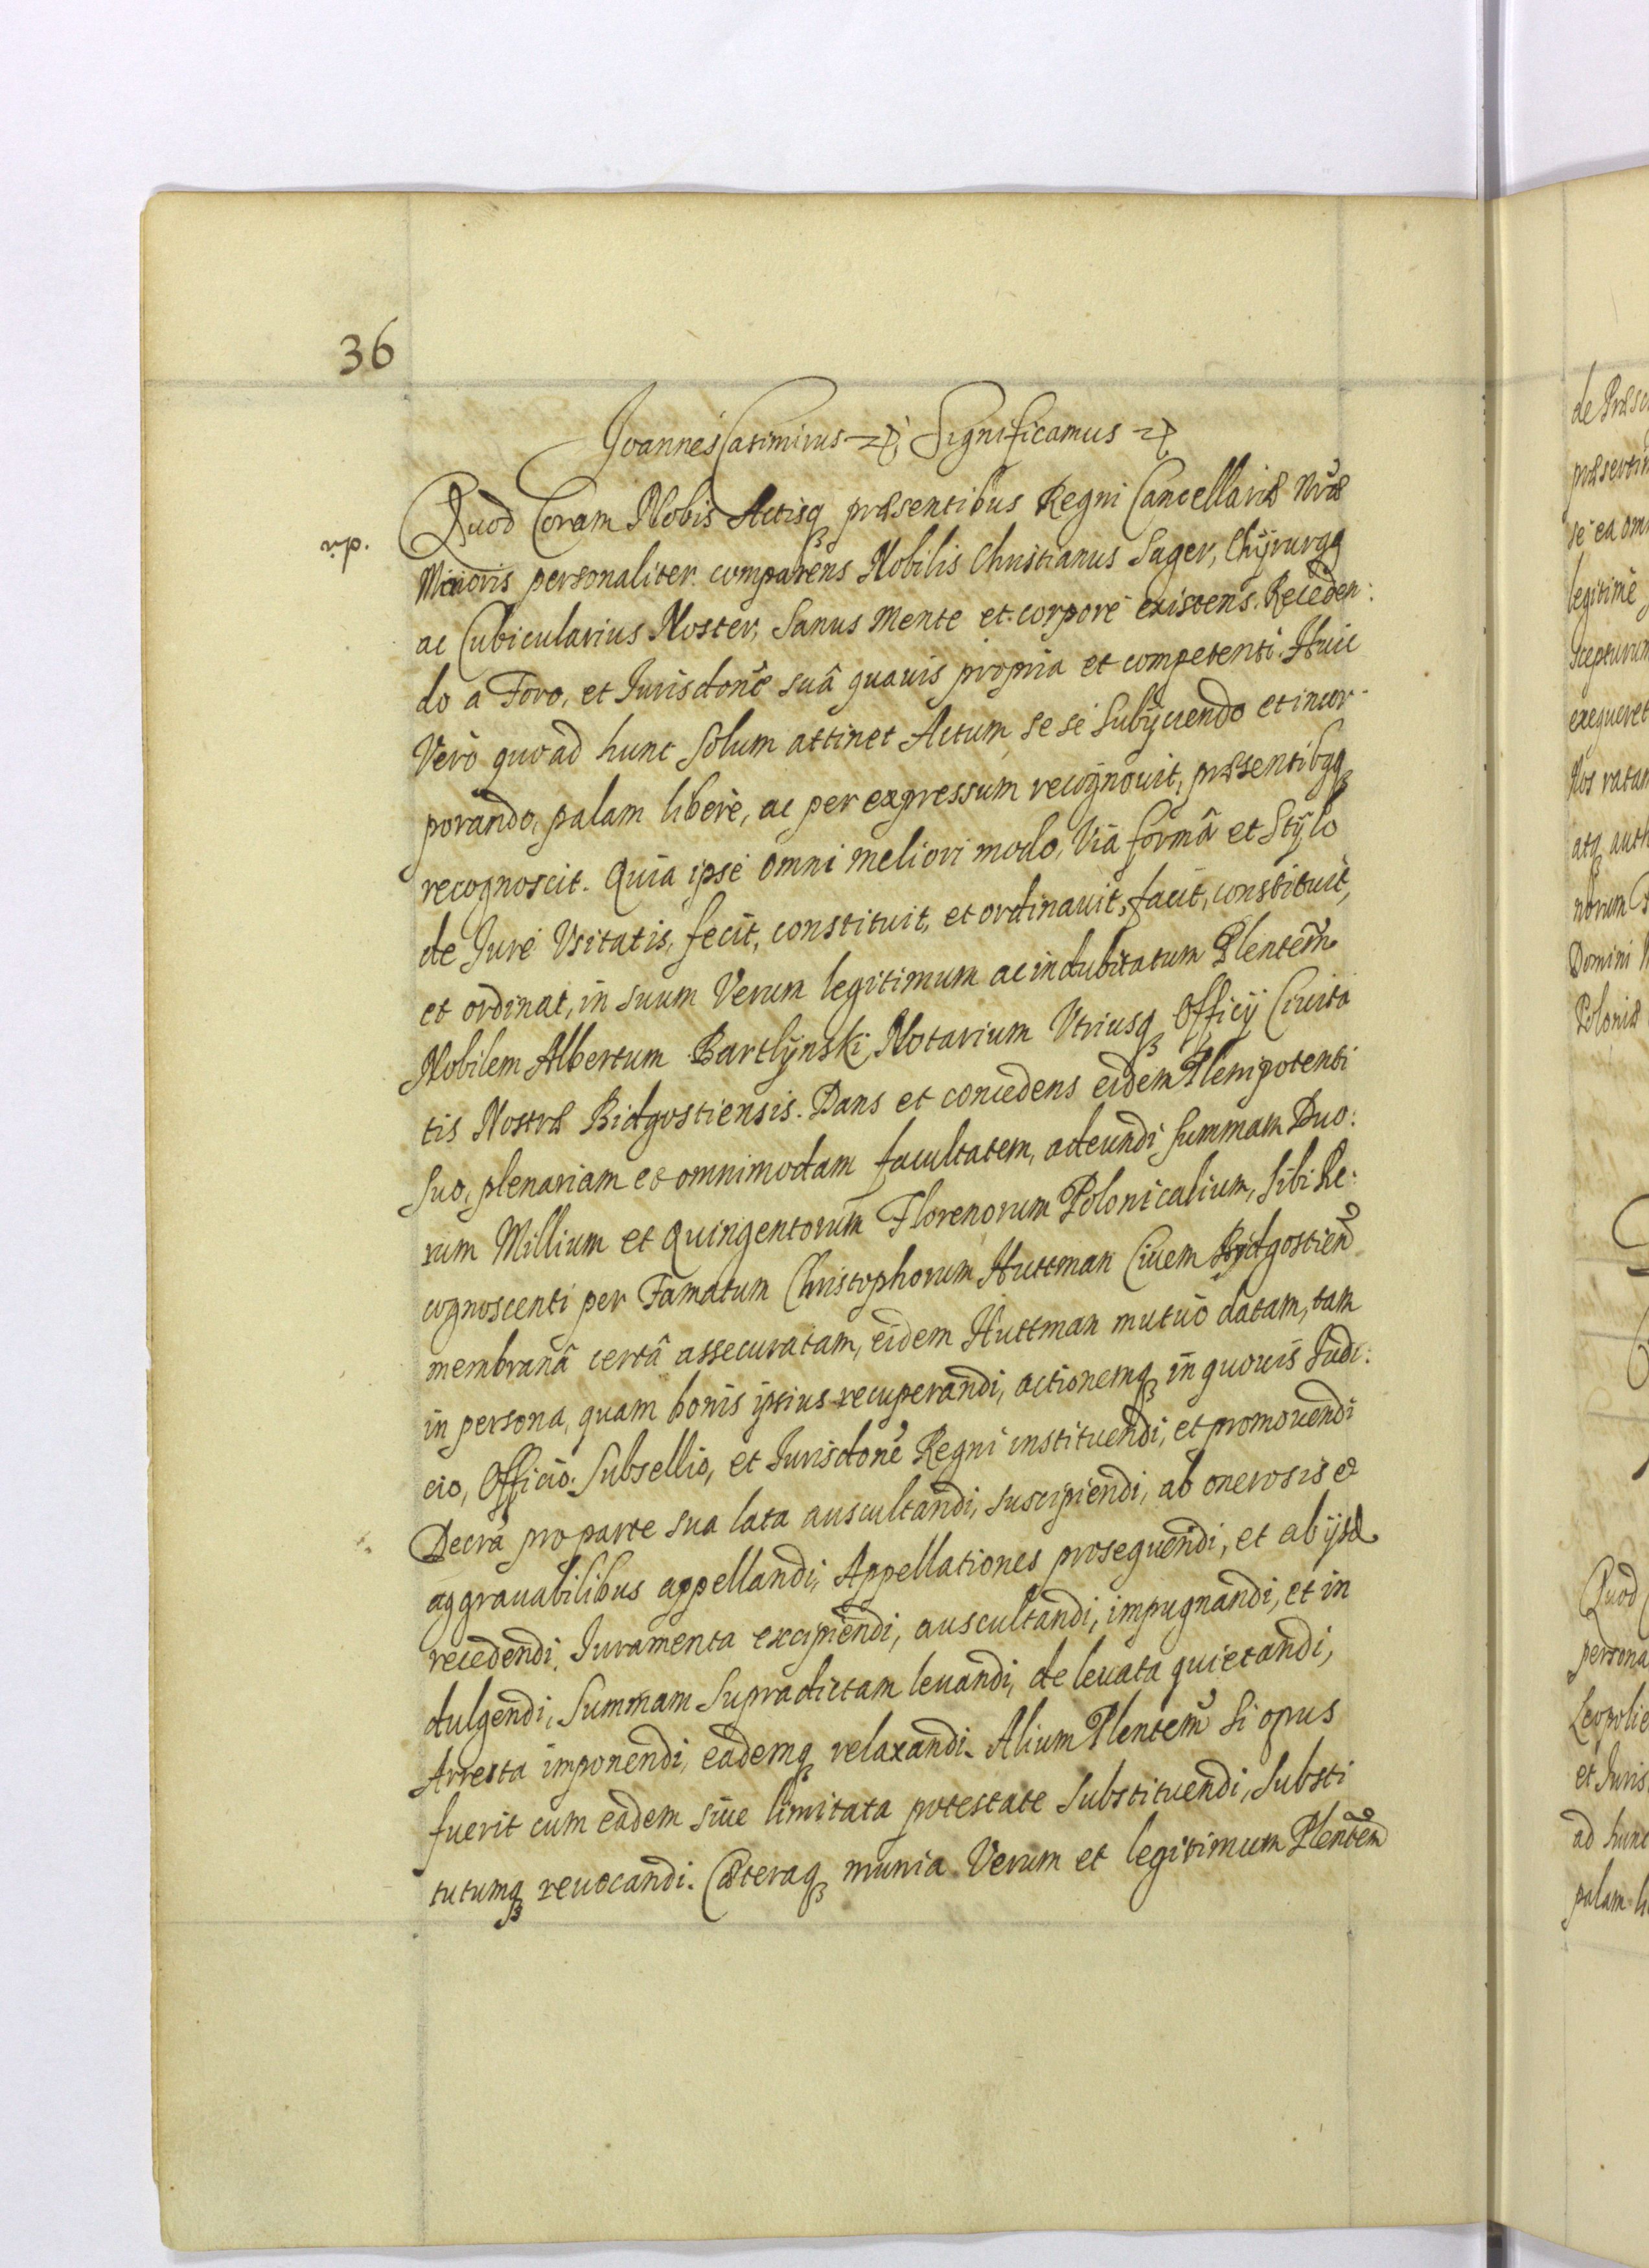 36
Joannes Casimirus Significamus
r.p.
Quod Coram Nobis Actisq₃ præsentibus Regni Cancellariæ Nr̃æ
Minoris personaliter comparens Nobilis Christianus Sager, Chÿrurgq
ac Cubicularius Noster, Sanus Mente et corpore existens. Receden:
do a Foro, et Jurisdone sua quauis propria et competenti. Huic
Vero quoad hunc Solum attinet Actum se se Subÿciendo et incor-
porando, palam libere, ac per expressum recognouit, præsentibqq₃
recognoscit. Quia ipse omni meliori modo, Via formâ et Stÿlo
de Jure Vsitatis, fecit, constituit, et ordinauit, facit, constituit,
et ordinat, in suum Verum legitimum ac indubitatum Plentem̃
Nobilem Albertum Bartlÿnski, Notarium Vtriusq₃ Officÿ Ciuita
tis Nostræ Bidgostiensis. Dans et concedens eidem Plenipotenti
suo, plenariam et omnimodam facultatem, adeundi summam Duo:
rum Millium et Quingentorum Florenorum Polonicalium, sibi Re:
cognoscenti per Famatum Christophorum Huttman Ciuem Bydgostien̄
membranâ certâ assecuratam, eidem Huttman mutuo datam, tam
in persona, quam bonis ipsius recuperandi, actionemq₃ in quouis Judi:
cio, Officio. Subsellio, et Jurisdone Regni instituendi, et promouendi
Decra pro parte sua lata auscultandi, suscipiendi, ab onerosis et
aggrauabilibus appellandi, Appellationes prosequendi, et ab ijsd
recedendi. Juramenta excipiendi, auscultandi, impugnandi, et in
dulgendi, Summam Supradictam leuandi, de leuata quietandi,
Arresta imponendi, eademq₃ relaxandi. Alium Plentem̃ si opus
fuerit cum eadem siue limitata potestate Substituendi, Substi
tutumq₃ reuocandi. Cæteraq₃ munia Verum et legitimum Plentem̃
de Præsc
præsertim
se ea om
legitime
scepturum
exequeret
Nos ratam
atq₃ auth
norum
Domini
Poloniæ
Quod
persona
Leopolie
et Juris
ad hunc
palam li